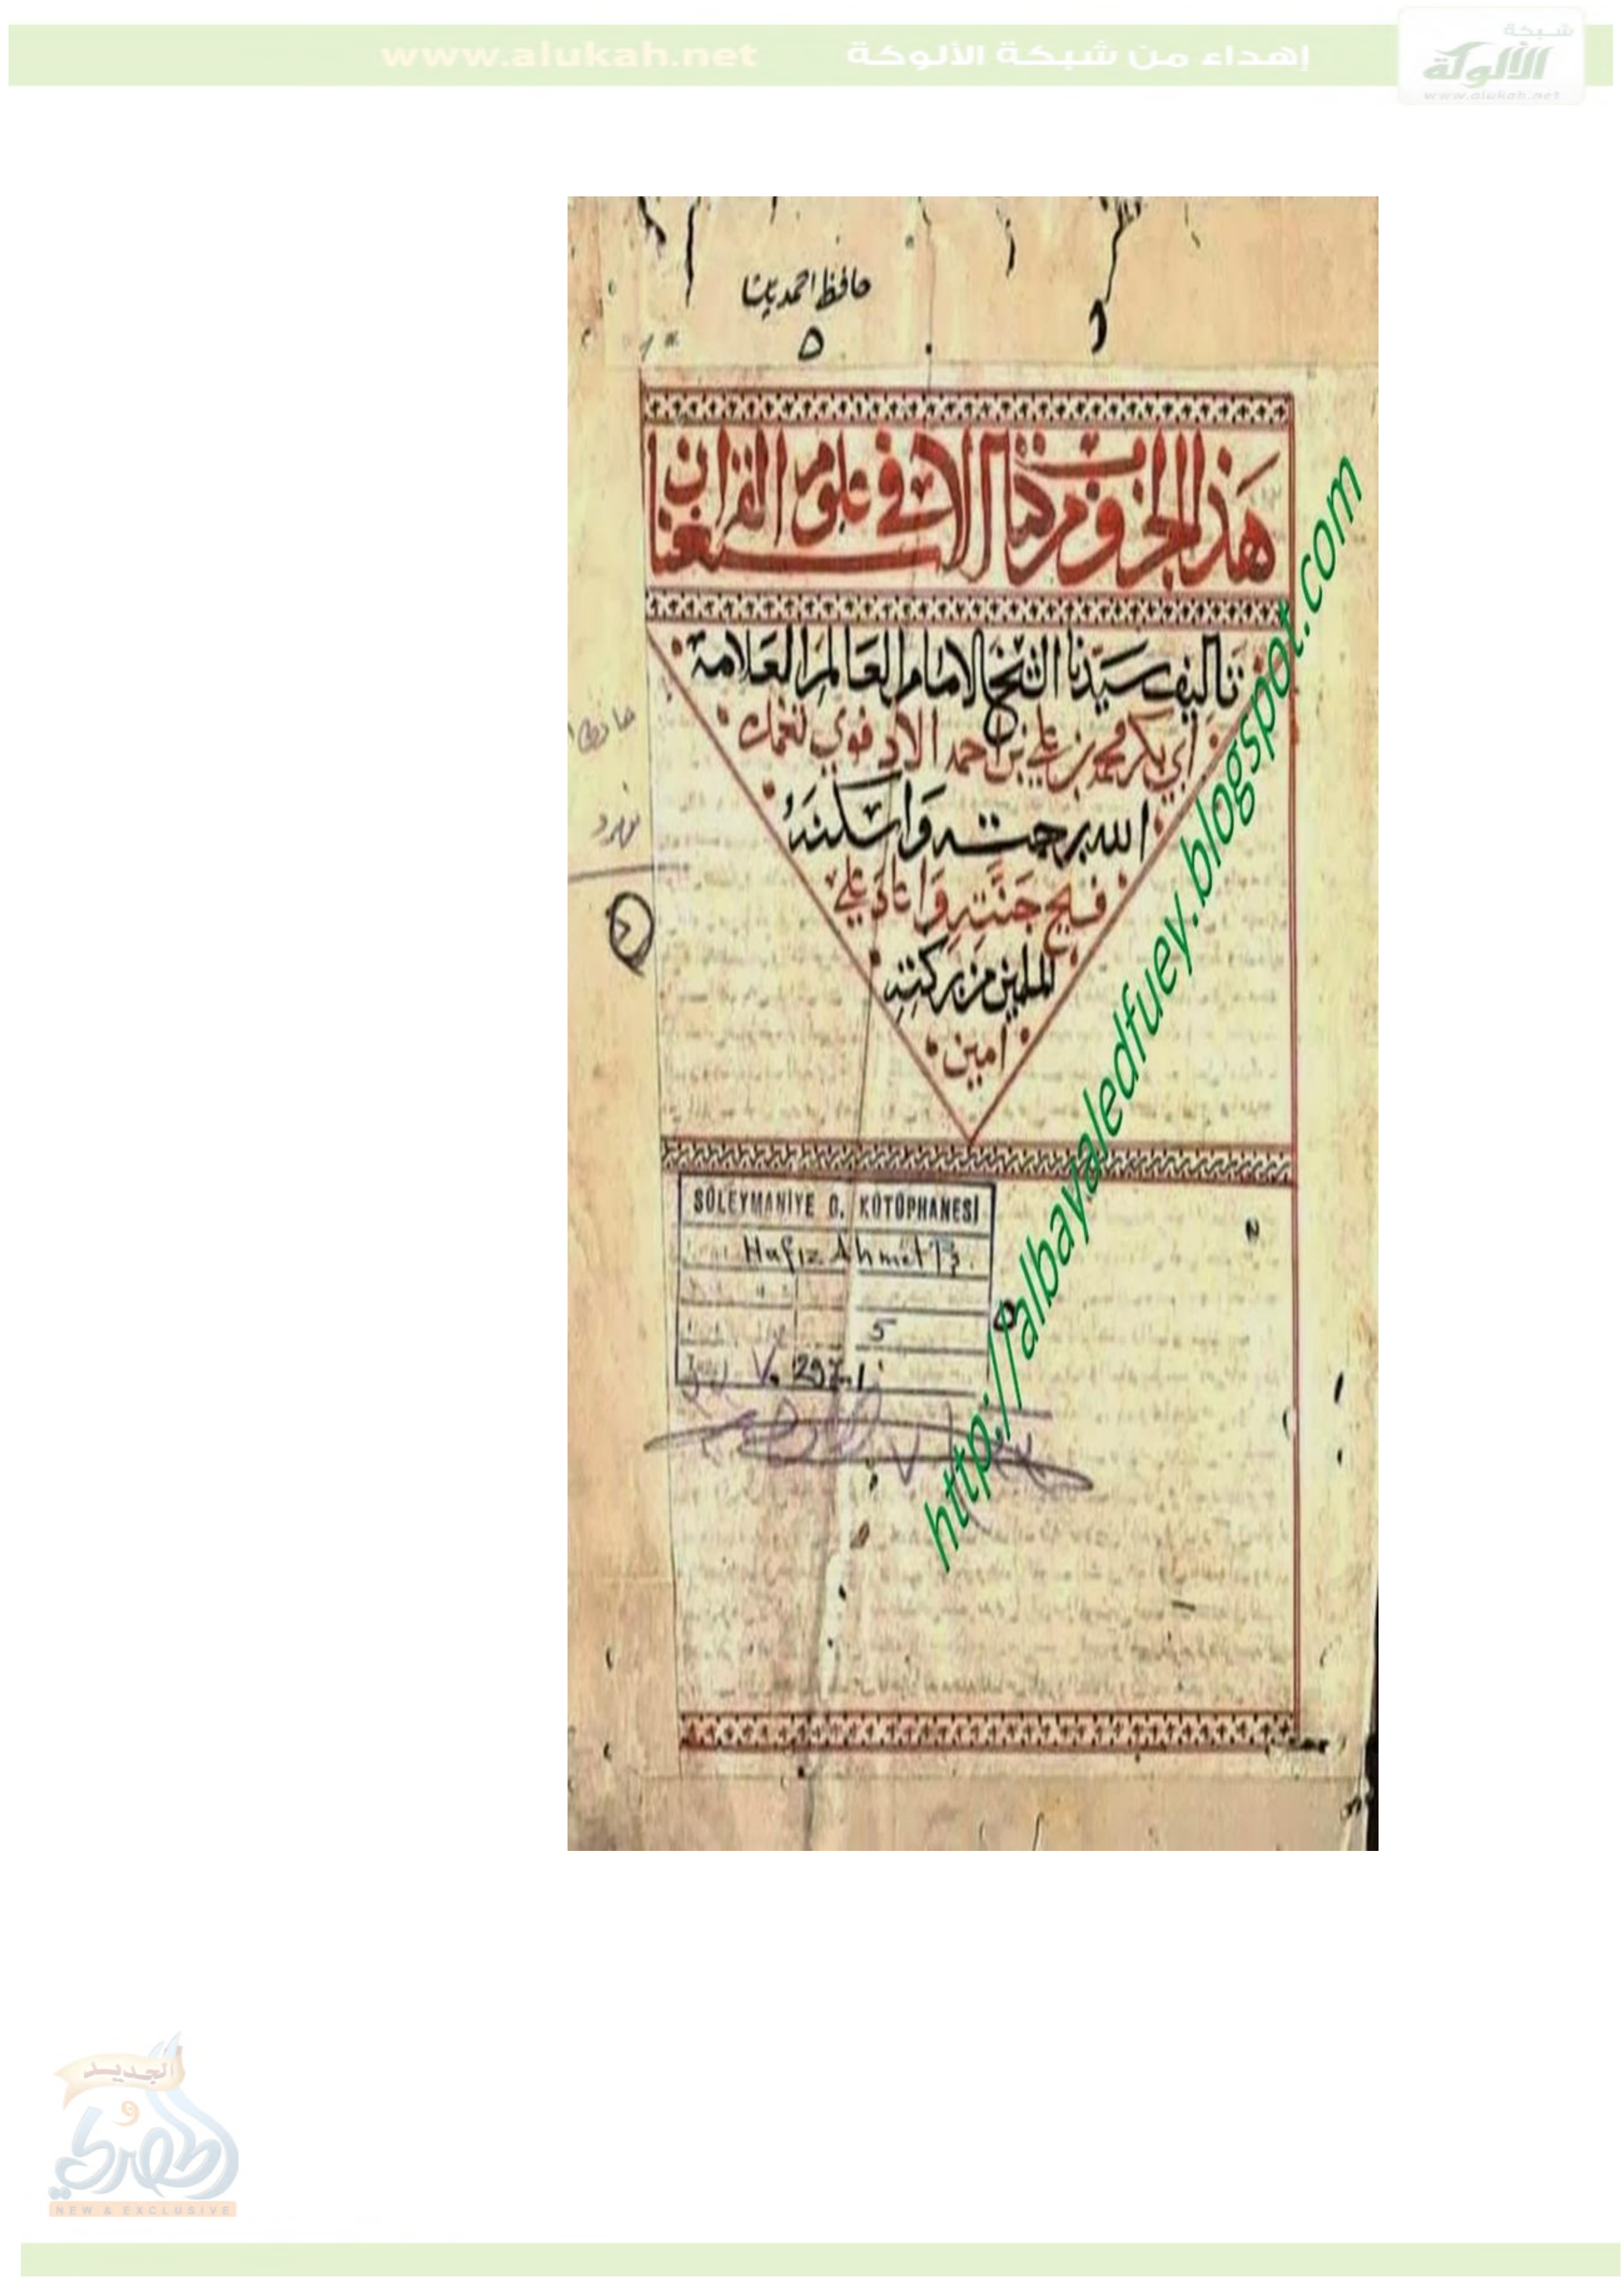 شبكة
الألوكة
www.alukah.net
إهداء من شبكة الألوكة www.alukah.net
حافظ احمد پاشا
٥
هذا الجزو من كتاب الاستغنا في علوم القران
تاليف سيدنا الشيخ الامام العالم العلامة
ابي بكر محمد بن علي بن احمد الادفوي تغمده
الله برحمته واسكنه
فسيح جنته واعاد علي
المسلمين من بركته
امين
SÜLEYMANİYE G. KÜTÜPHANESİ
Hafız Ahmet Pş.
5
297.1
http://albayaledfuey.blogspot.com
الجديد
و
الحصري
NEW & EXCLUSIVE